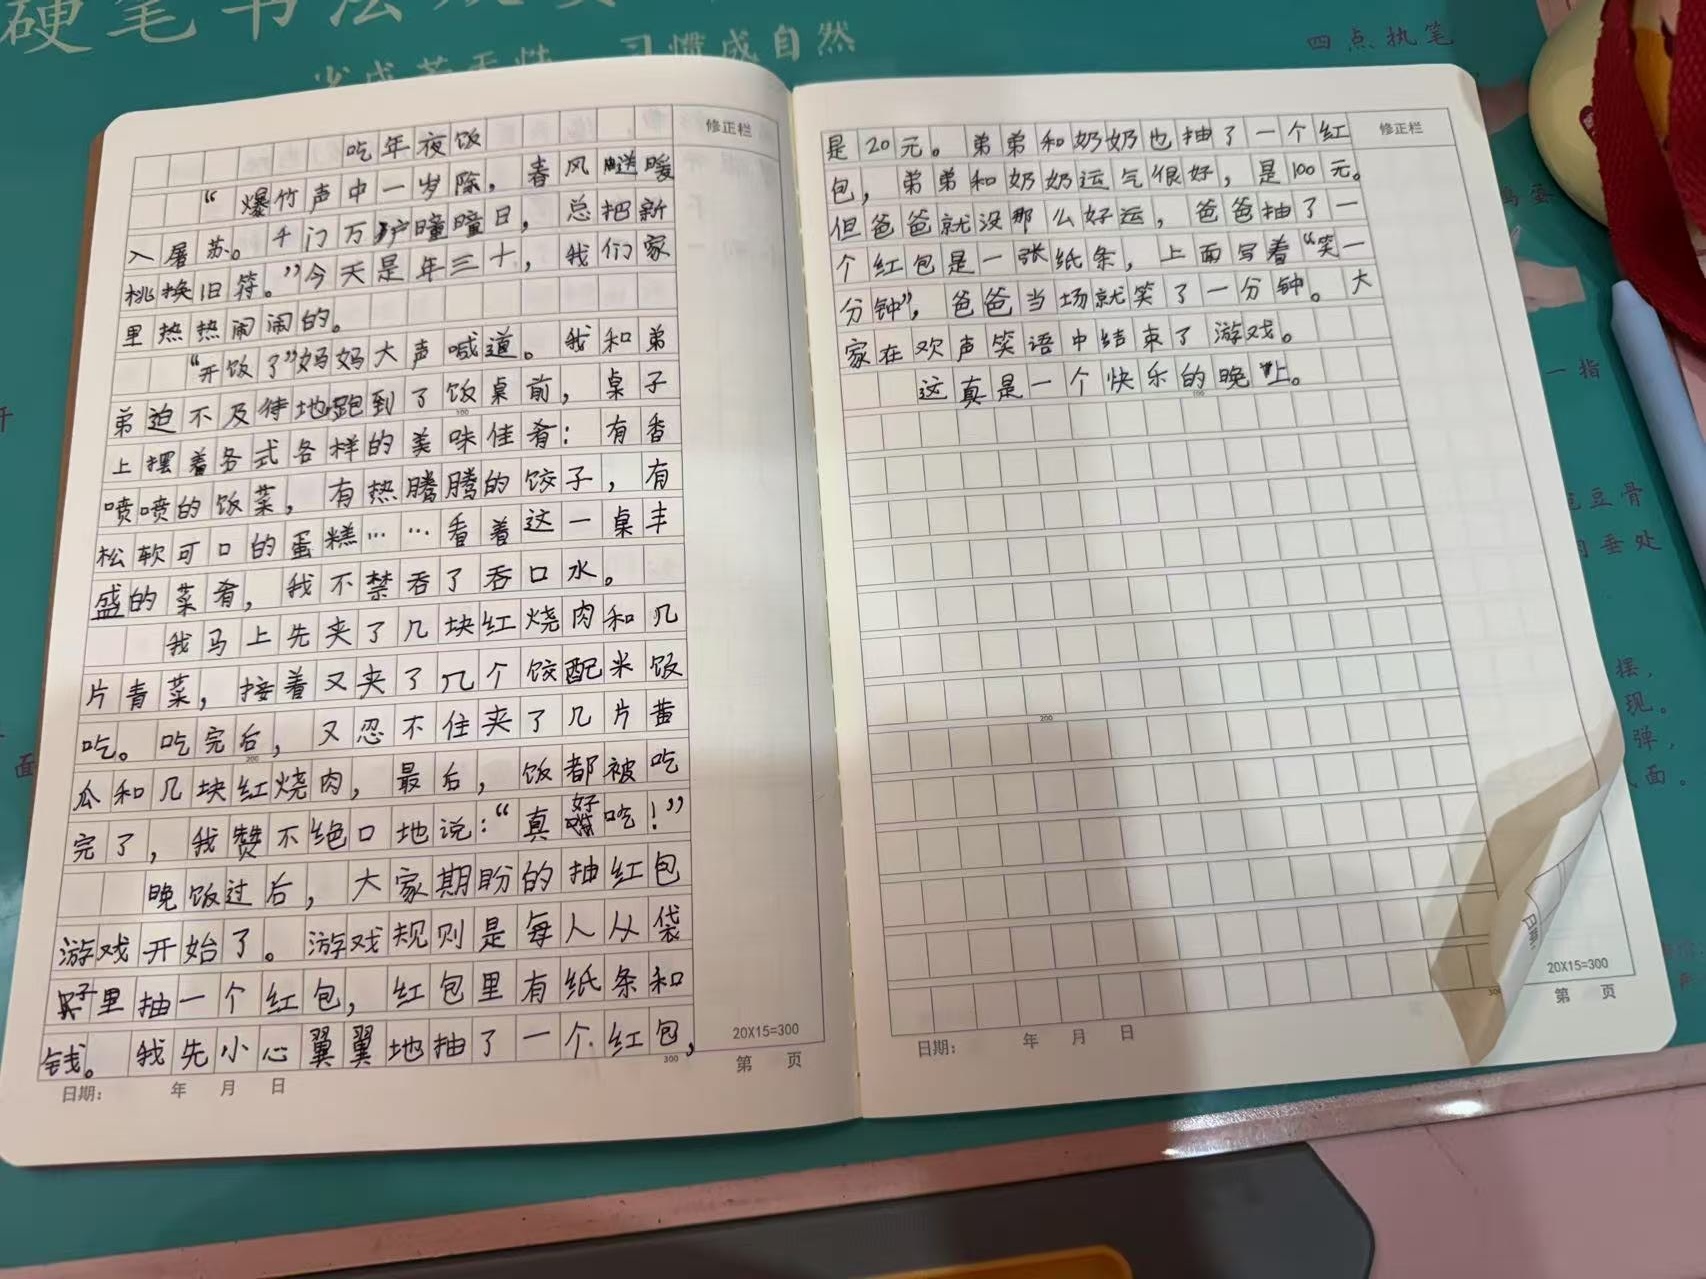 硬笔书法
习惯成自然
四点执笔
吃年夜饭
修正栏
“爆竹声中一岁除，春风送暖
入屠苏。千门万户曈曈日，总把新
桃换旧符。”今天是年三十，我们家
里热热闹闹的。
“开饭了”妈妈大声喊道。我和弟
弟迫不及待地跑到了饭桌前，桌子
上摆着各式各样的美味佳肴：有香
喷喷的饭菜，有热腾腾的饺子，有
松软可口的蛋糕……看着这一桌丰
盛的菜肴，我不禁吞了吞口水。
我马上先夹了几块红烧肉和几
片青菜，接着又夹了几个饺配米饭
吃。吃完后，又忍不住夹了几片黄
瓜和几块红烧肉，最后，饭都被吃
完了，我赞不绝口地说：“真好吃！”
晚饭过后，大家期盼的抽红包
游戏开始了。游戏规则是每人从袋
子里抽一个红包，红包里有纸条和
钱。我先小心翼翼地抽了一个红包，
100
200
300
20X15=300
日期： 年 月 日
第 页
修正栏
是20元。弟弟和奶奶也抽了一个红
包，弟弟和奶奶运气很好，是100元。
但爸爸就没那么好运，爸爸抽了一
个红包是一张纸条，上面写着“笑一
分钟”，爸爸当场就笑了一分钟。大
家在欢声笑语中结束了游戏。
这真是一个快乐的晚上。
100
200
300
20X15=300
日期： 年 月 日
第 页
日期：
一指
豆骨
垂处
摆，
现。
弹，
面。
面